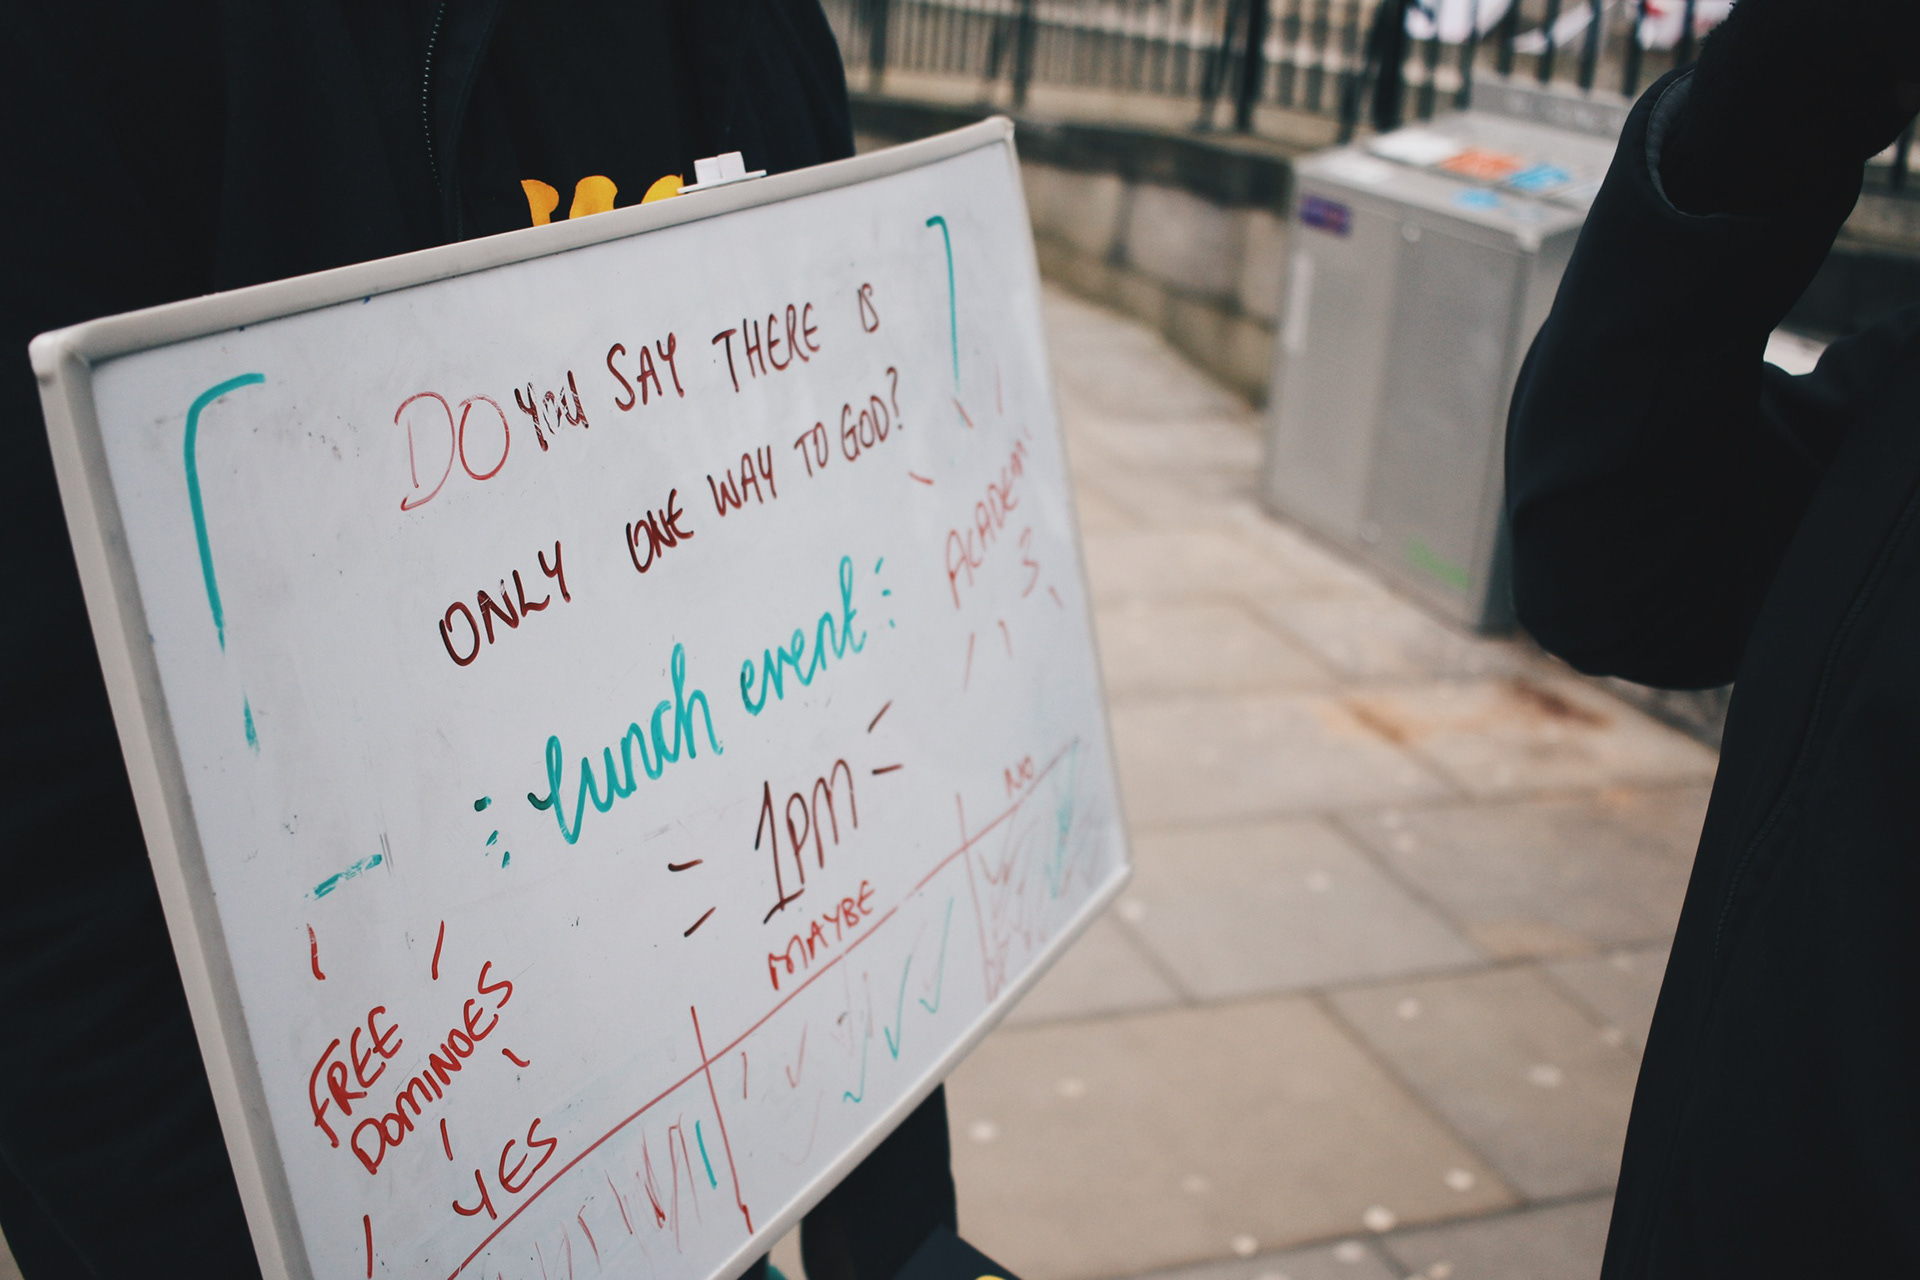 DO YOU SAY THERE IS
ONLY ONE WAY TO GOD?
lunch event
1PM
3
FREE
DOMINOES
YES
MAYBE
NO